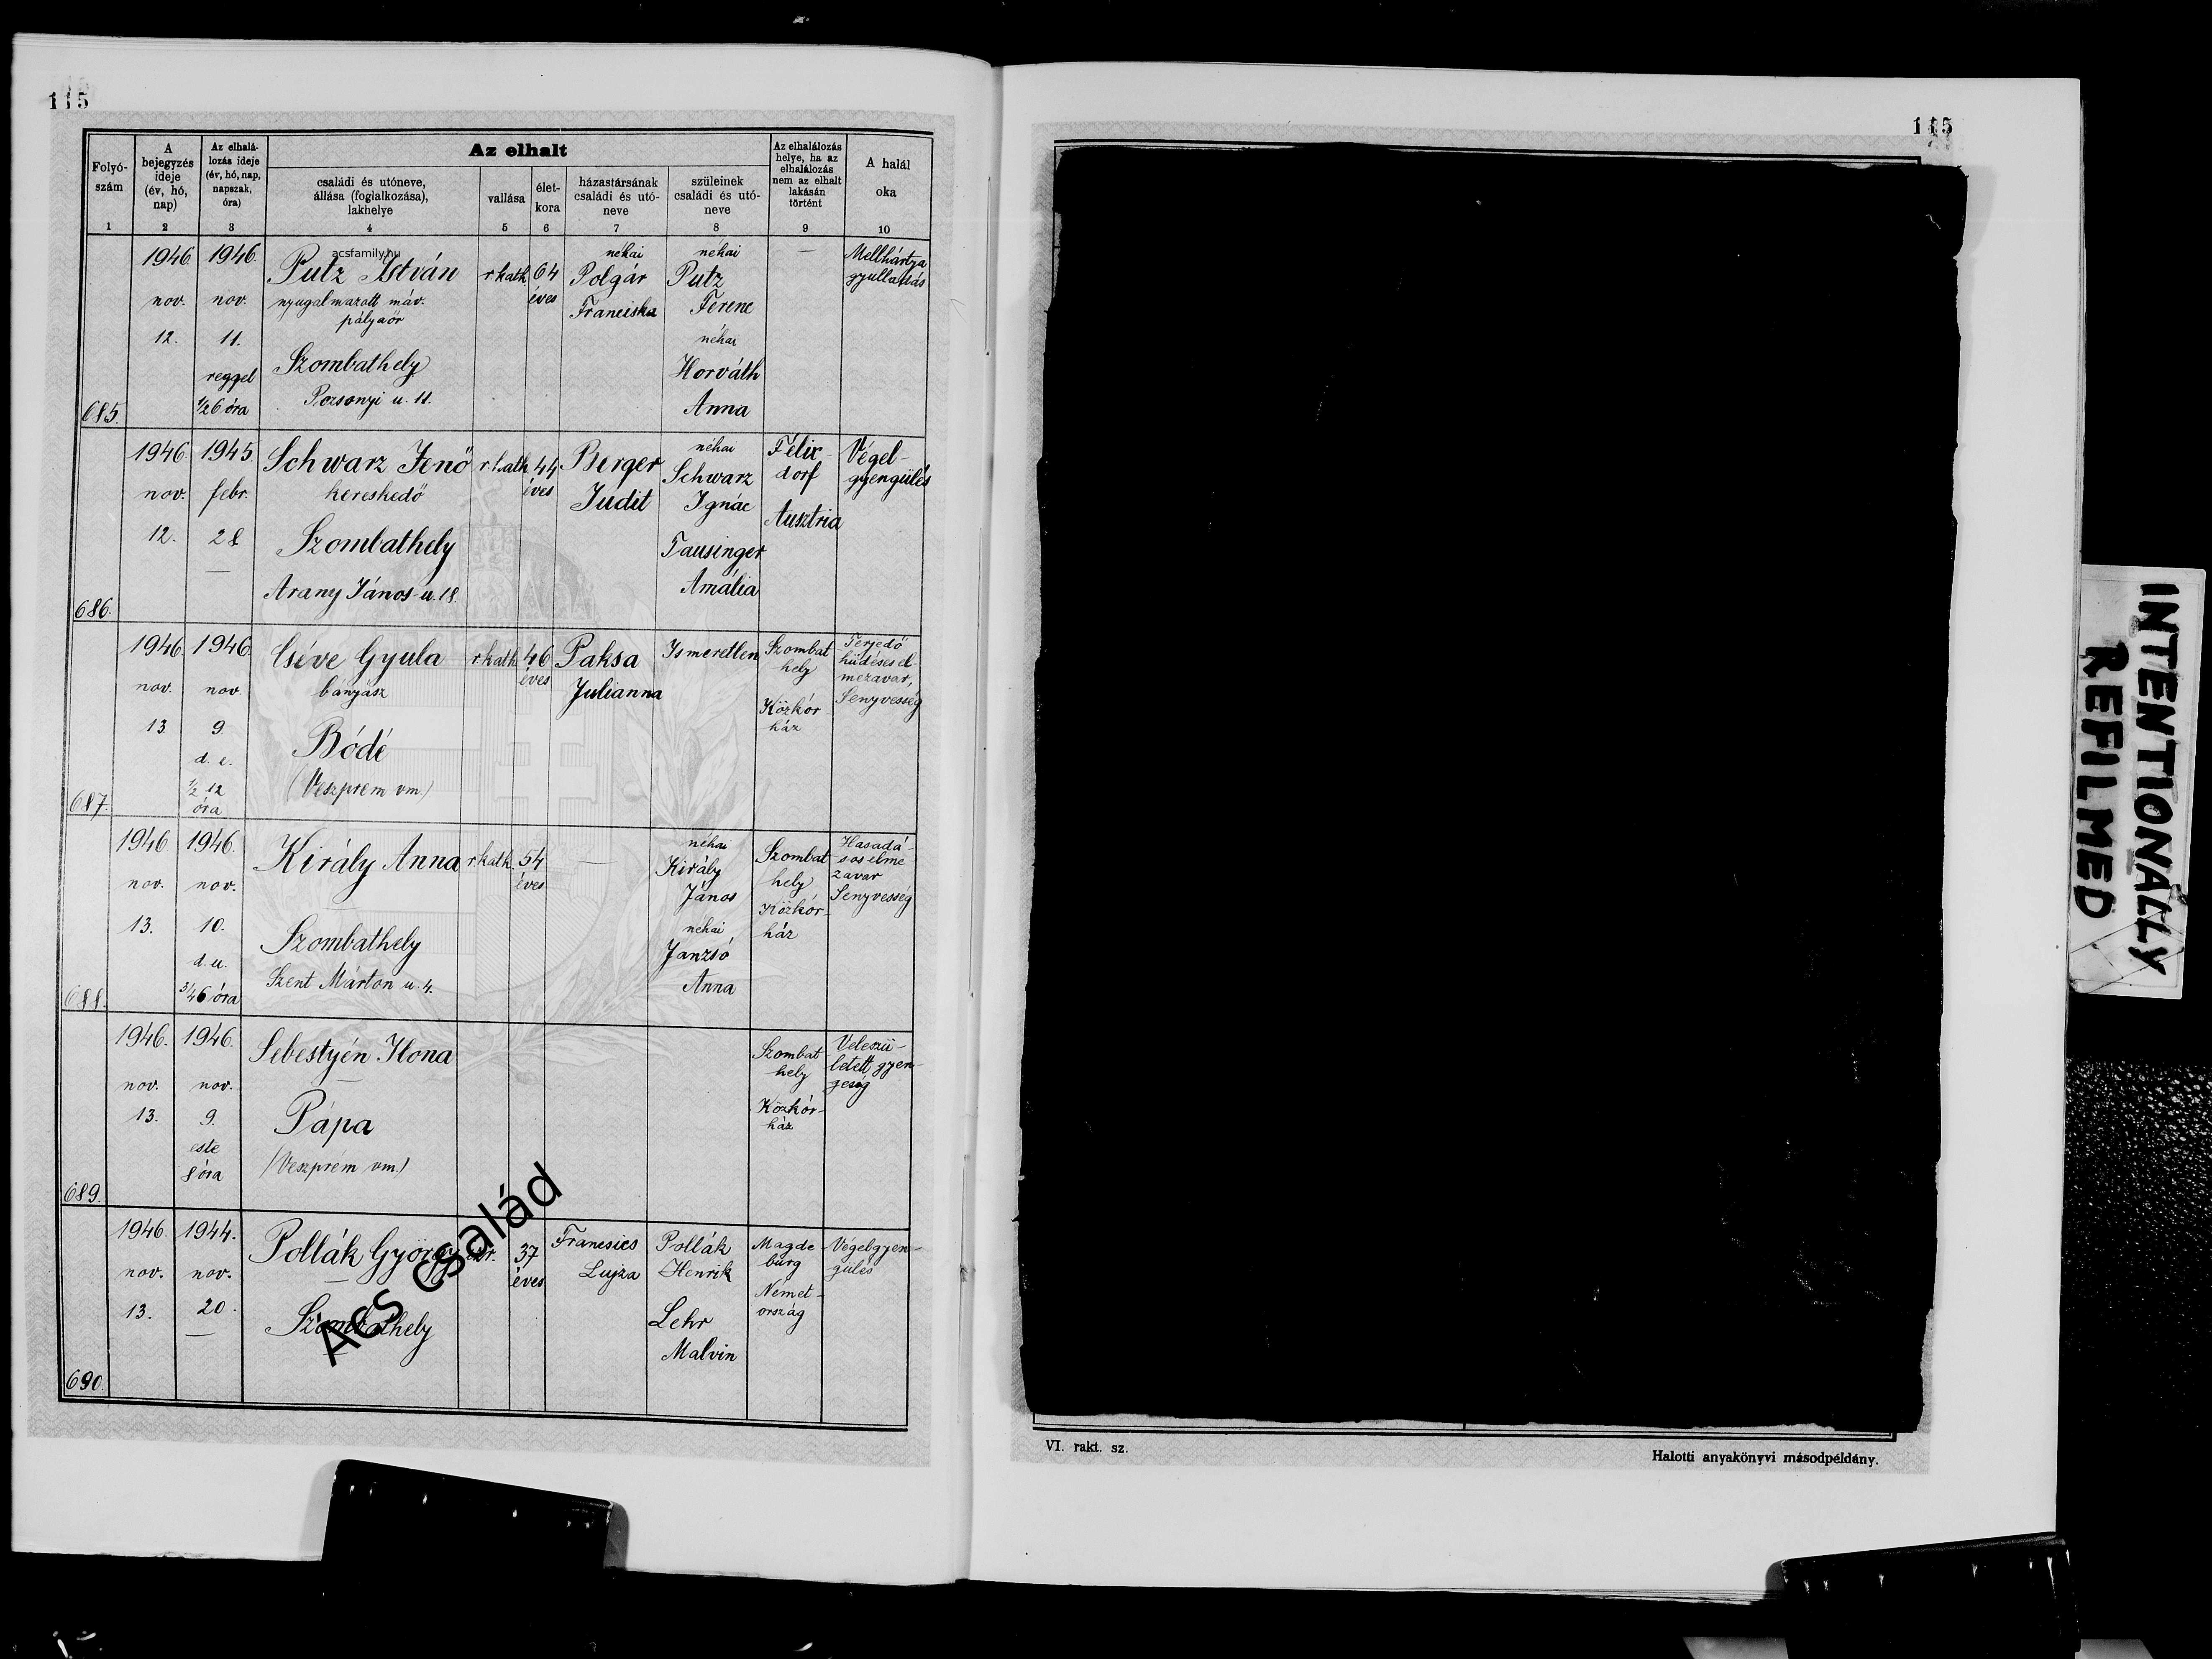 115
115
Az elhalt
Folyó-
szám
A
bejegyzés
ideje
(év, hó,
nap)
Az elhalá-
lozás ideje
(év, hó, nap,
napszak,
óra)
családi és utóneve,
állása (foglalkozása),
lakhelye
vallása
élet-
kora
házastársának
családi és utó-
neve
szüleinek
családi és utó-
neve
Az elhalálozás
helye, ha az
elhalálozás
nem az elhalt
lakásán
történt
A halál
oka
1 2 3 4 5 6 7 8 9 10
acsfamily.hu
685.
1946.
nov.
12.
1946.
nov.
11.
reggel
1/26 óra
Putz István
nyugalmazott máv.
pályaőr
Szombathely
Pozsonyi u. 11.
r.kath.
64
éves
néhai
Polgár
Franciska
néhai
Putz
Ferenc
néhai
Horváth
Anna
—
Mellhártya
gyulladás
686.
1946.
nov.
12.
1945.
febr.
28
—
Schwarz Jenő
kereskedő
Szombathely
Arany János u. 18.
r.kath.
44
éves
Berger
Judit
néhai
Schwarz
Ignác
Tausinger
Amália
Félix-
dorf
Ausztria
Végel-
gyengülés
687.
1946.
nov.
13
1946.
nov.
9
d. e.
1/2 12
óra
Cséve Gyula
bányász
Bódé
(Veszprém vm.)
r.kath.
46
éves
Paksa
Julianna
Ismeretlen
Szombat
hely
Közkór
ház
Terjedő
hűdéses el-
mezavar,
Senyvesség
688.
1946
nov.
13.
1946.
nov.
10.
d. u.
3/46 óra
Király Anna
—
Szombathely
Szent Márton u. 4.
r.kath.
54
éves
—
néhai
Király
János
néhai
Janzsó
Anna
Szombat
hely
Közkór-
ház
Hasadá-
sos elme
zavar
Senyvesség
689.
1946.
nov.
13.
1946.
nov.
9.
este
8 óra
Sebestyén Ilona
—
Pápa
(Veszprém vm.)
Szombat
hely
Közkór-
ház
Veleszü-
letett gyen-
geség
690.
1946.
nov.
13.
1944.
nov.
20.
—
Pollák György
—
Szombathely
—
izr.
37
éves
Francsics
Lujza
Pollák
Henrik
Lehr
Malvin
Magde
burg
Német-
ország
Végelgyen-
gülés
Ács Család
VI. rakt. sz.
Halotti anyakönyvi másodpéldány.
INTENTIONALLY
REFILMED